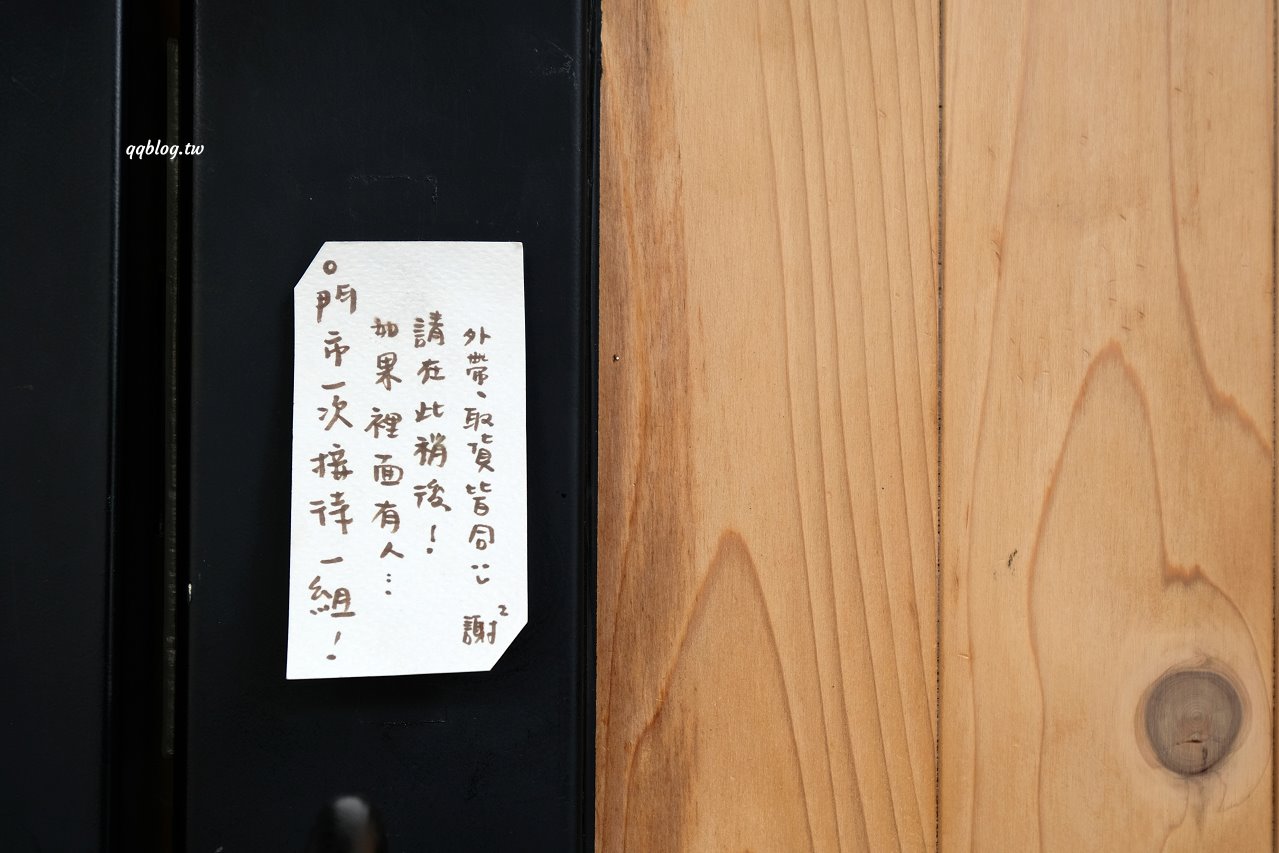 qqblog.tw
。門市一次接待一組！
如果裡面有人…
請在此稍後！
外帶、取貨皆同
謝²